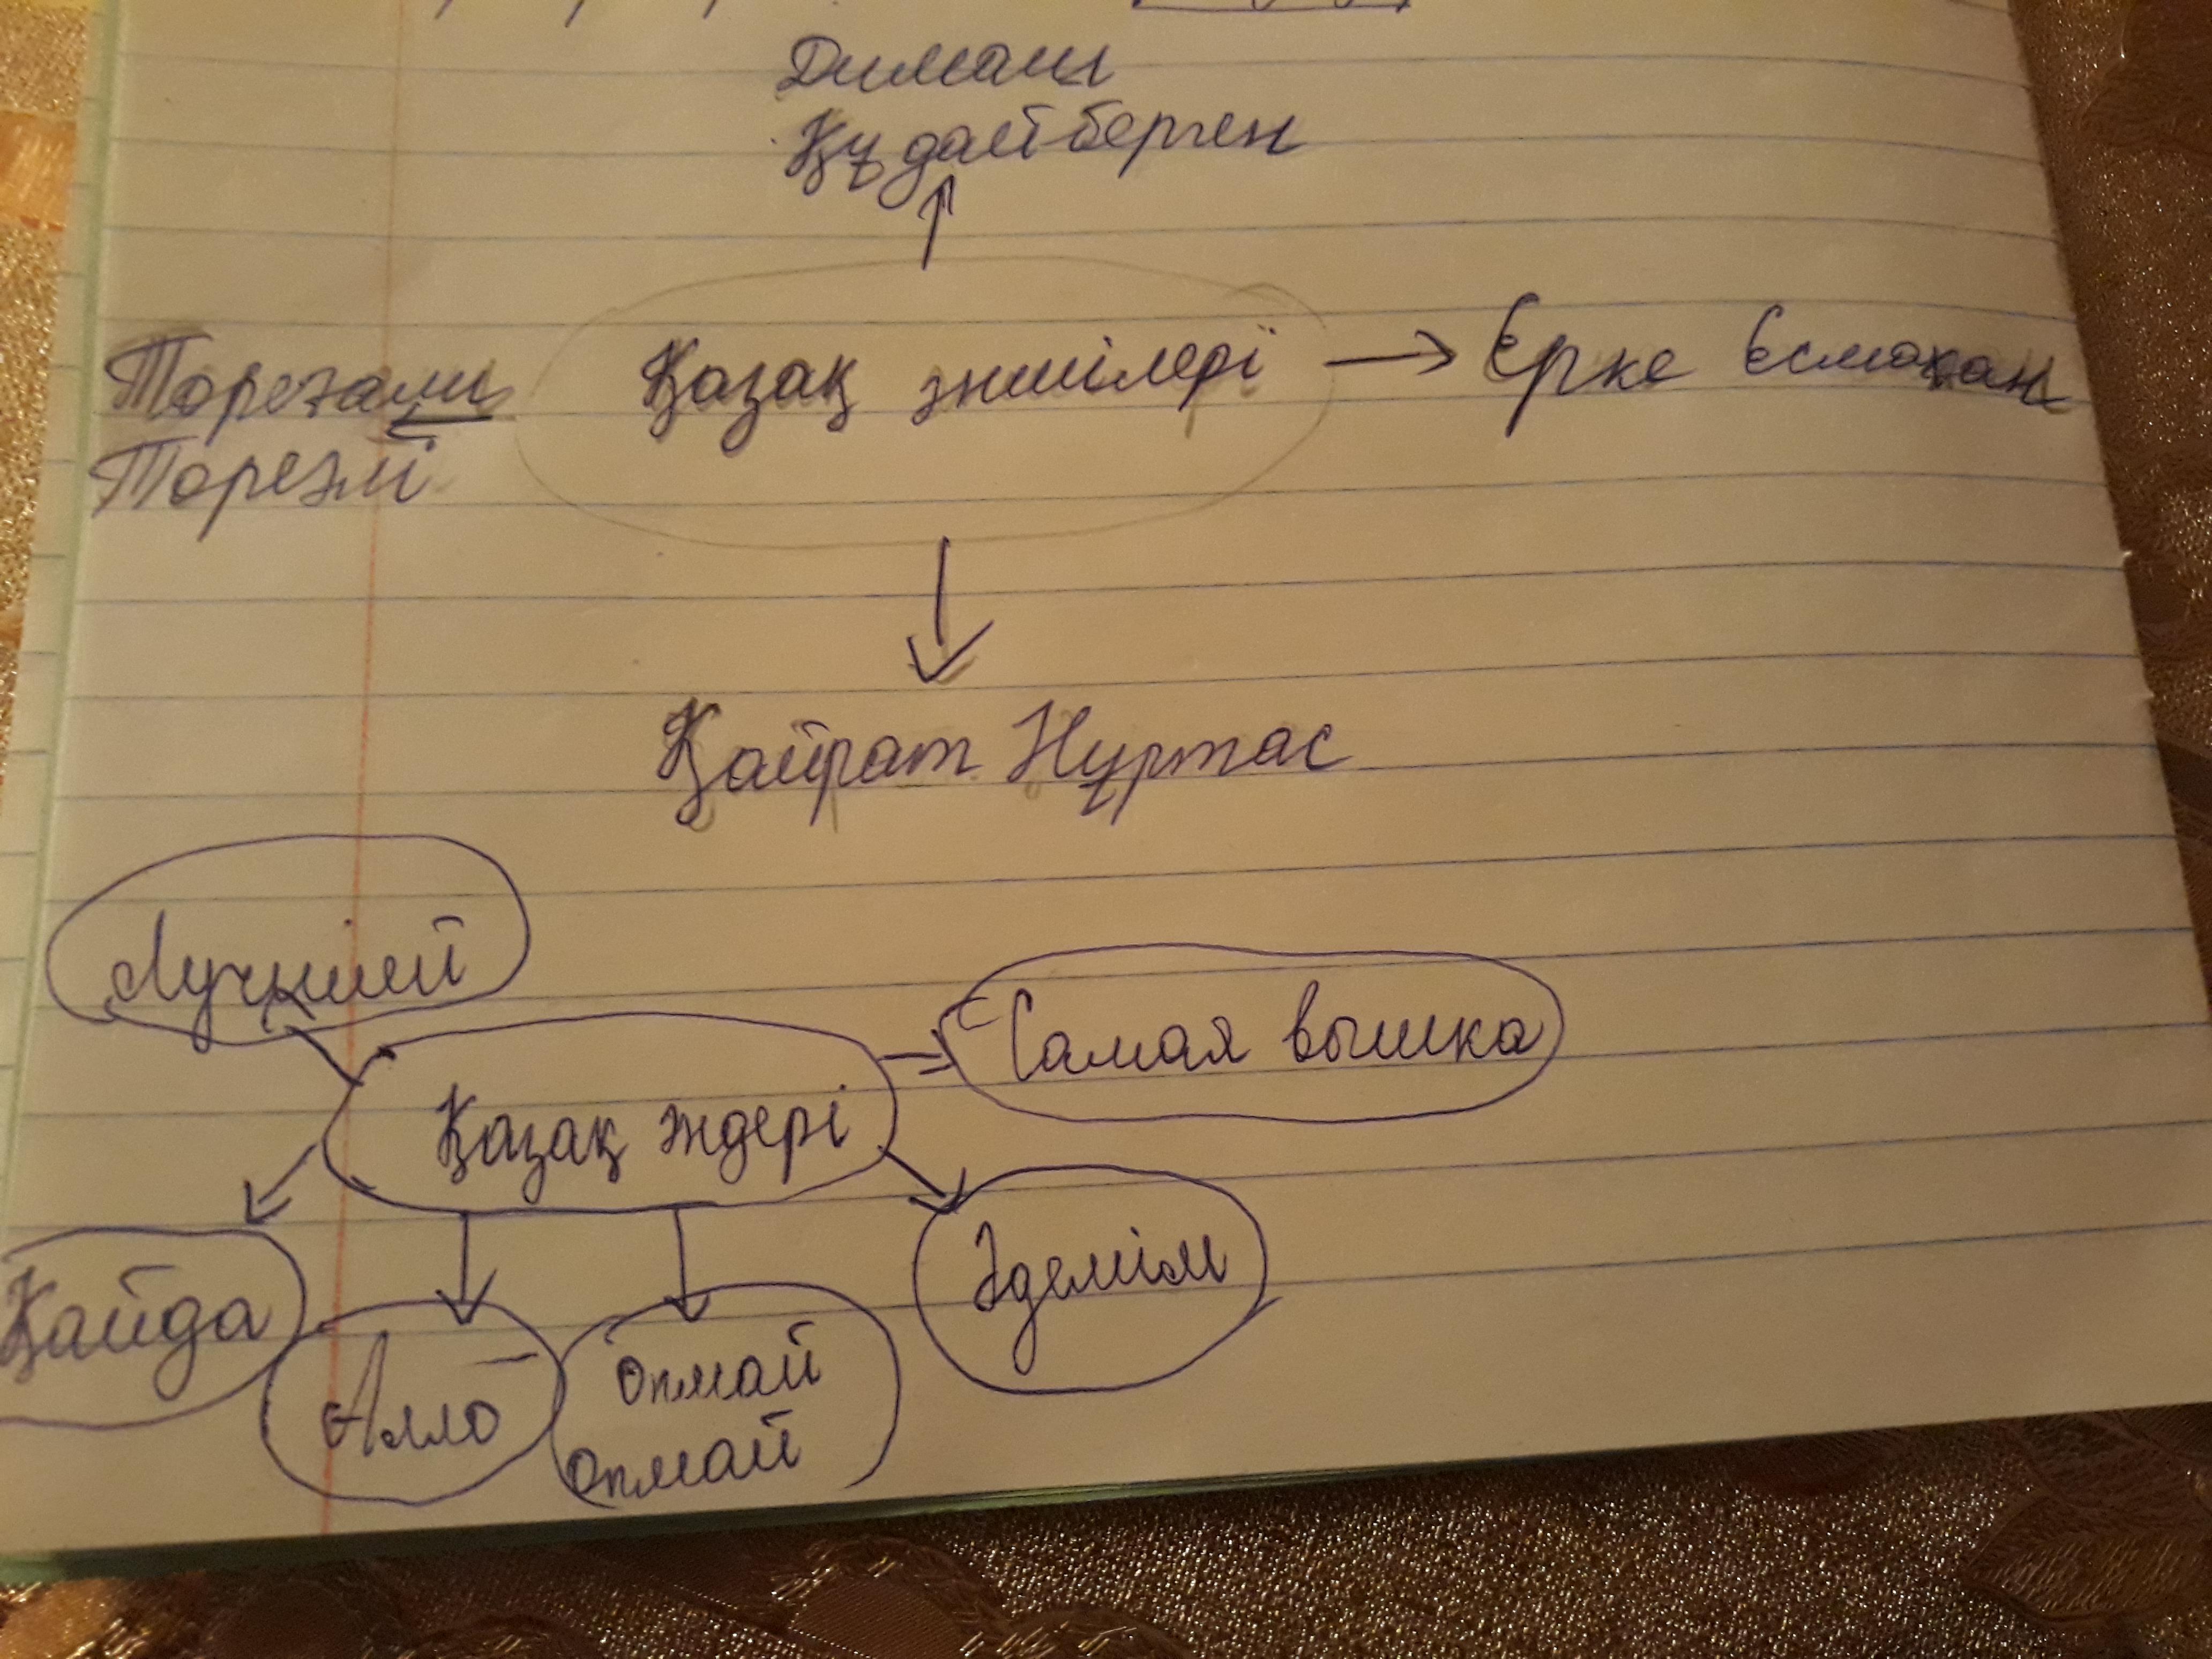 Димаш
Құдайберген
Қазақ әншілері
Ерке Есмахан
Төреғали
Төреәлі
Қайрат Нұртас
Лучший
Самая вышка
Қазақ әндері
Әдемім
Қайда
Алло
Өкпелемей